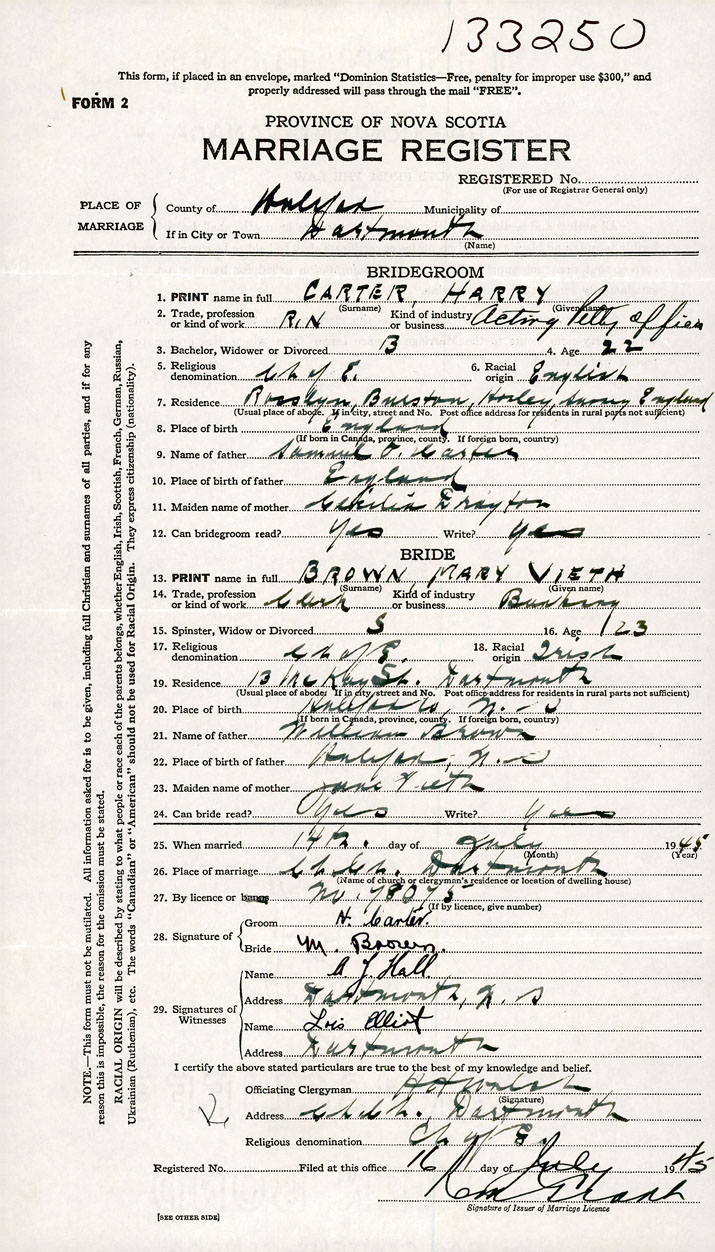 133250
This form, if placed in an envelope, marked "Dominion Statistics—Free, penalty for improper use $300," and
properly addressed will pass through the mail "FREE".
FORM 2
PROVINCE OF NOVA SCOTIA
MARRIAGE REGISTER
REGISTERED No.
(For use of Registrar General only)
PLACE OF MARRIAGE
County of Halifax Municipality of
If in City or Town Dartmouth
(Name)
BRIDEGROOM
1. PRINT name in full CARTER, HARRY
(Surname) (Given name)
2. Trade, profession or kind of work R.N Kind of industry or business Acting Petty Officer
3. Bachelor, Widower or Divorced B 4. Age 22
5. Religious denomination Ch of E. 6. Racial origin English
7. Residence Rosslyn, Burston, Horley, Surrey England
(Usual place of abode. If in city, street and No. Post office address for residents in rural parts not sufficient)
8. Place of birth England
(If born in Canada, province, county. If foreign born, country)
9. Name of father Samuel O. Carter
10. Place of birth of father England
11. Maiden name of mother Cecilia Drayton
12. Can bridegroom read? Yes Write? Yes
BRIDE
13. PRINT name in full BROWN, MARY VIETH
(Surname) (Given name)
14. Trade, profession or kind of work Clerk Kind of industry or business Banking
15. Spinster, Widow or Divorced S 16. Age 23
17. Religious denomination Ch of E. 18. Racial origin Irish
19. Residence 13 McKay St. Dartmouth
(Usual place of abode: If in city, street and No. Post office address for residents in rural parts not sufficient)
20. Place of birth Halifax, N.S
(If born in Canada, province, county. If foreign born, country)
21. Name of father William Brown
22. Place of birth of father Halifax, N.S
23. Maiden name of mother Jane Vieth
24. Can bride read? Yes Write? Yes
25. When married 14th. day of July 1945
(Month) (Year)
26. Place of marriage Ch. Ch. Dartmouth
(Name of church or clergyman's residence or location of dwelling house)
27. By licence or banns No. 78075
(If by licence, give number)
28. Signature of
Groom H. Carter.
Bride M. Brown.
29. Signatures of Witnesses
Name A J. Hall
Address Dartmouth, N.S
Name Lois Elliot
Address Dartmouth
I certify the above stated particulars are true to the best of my knowledge and belief.
Officiating Clergyman
(Signature)
Address Ch. Ch. Dartmouth
Religious denomination Ch of E.
Registered No. Filed at this office 16 day of July 1945
Signature of Issuer of Marriage Licence
[SEE OTHER SIDE]
NOTE.—This form must not be mutilated. All information asked for is to be given, including full Christian and surnames of all parties, and if for any
reason this is impossible, the reason for the omission must be stated.
RACIAL ORIGIN will be described by stating to what people or race each of the parents belongs, whether English, Irish, Scottish, French, German, Russian,
Ukrainian (Ruthenian), etc. The words "Canadian" or "American" should not be used for Racial Origin. They express citizenship (nationality).